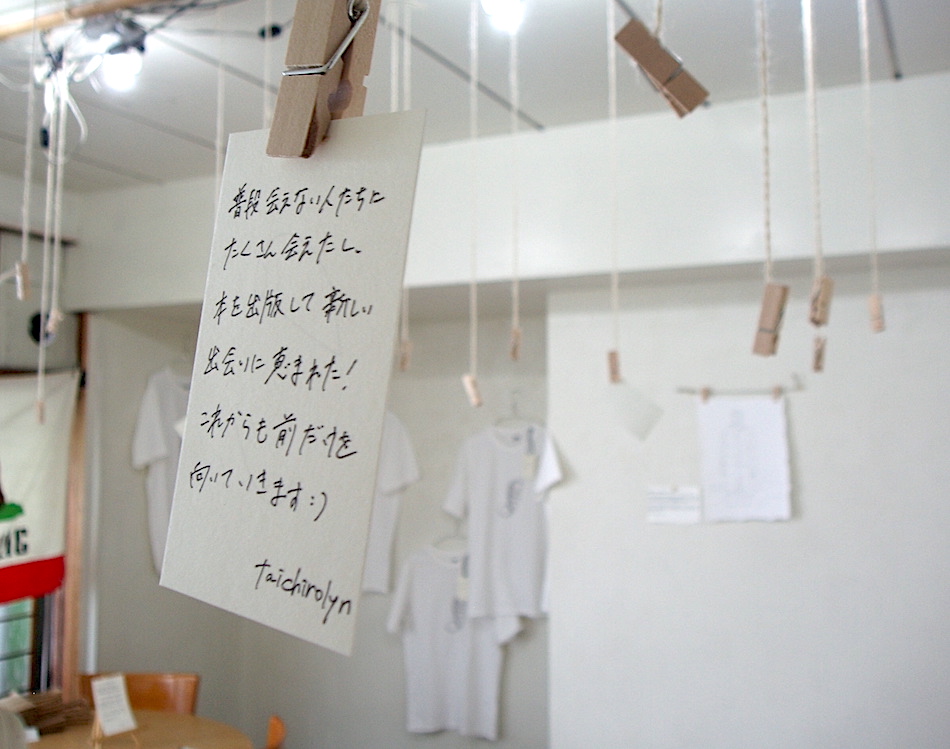 普段会えない人たちに
たくさん会えたし、
本を出版して新しい
出会いに恵まれた!
これからも前だけを
向いていきます:)
taichirolyn